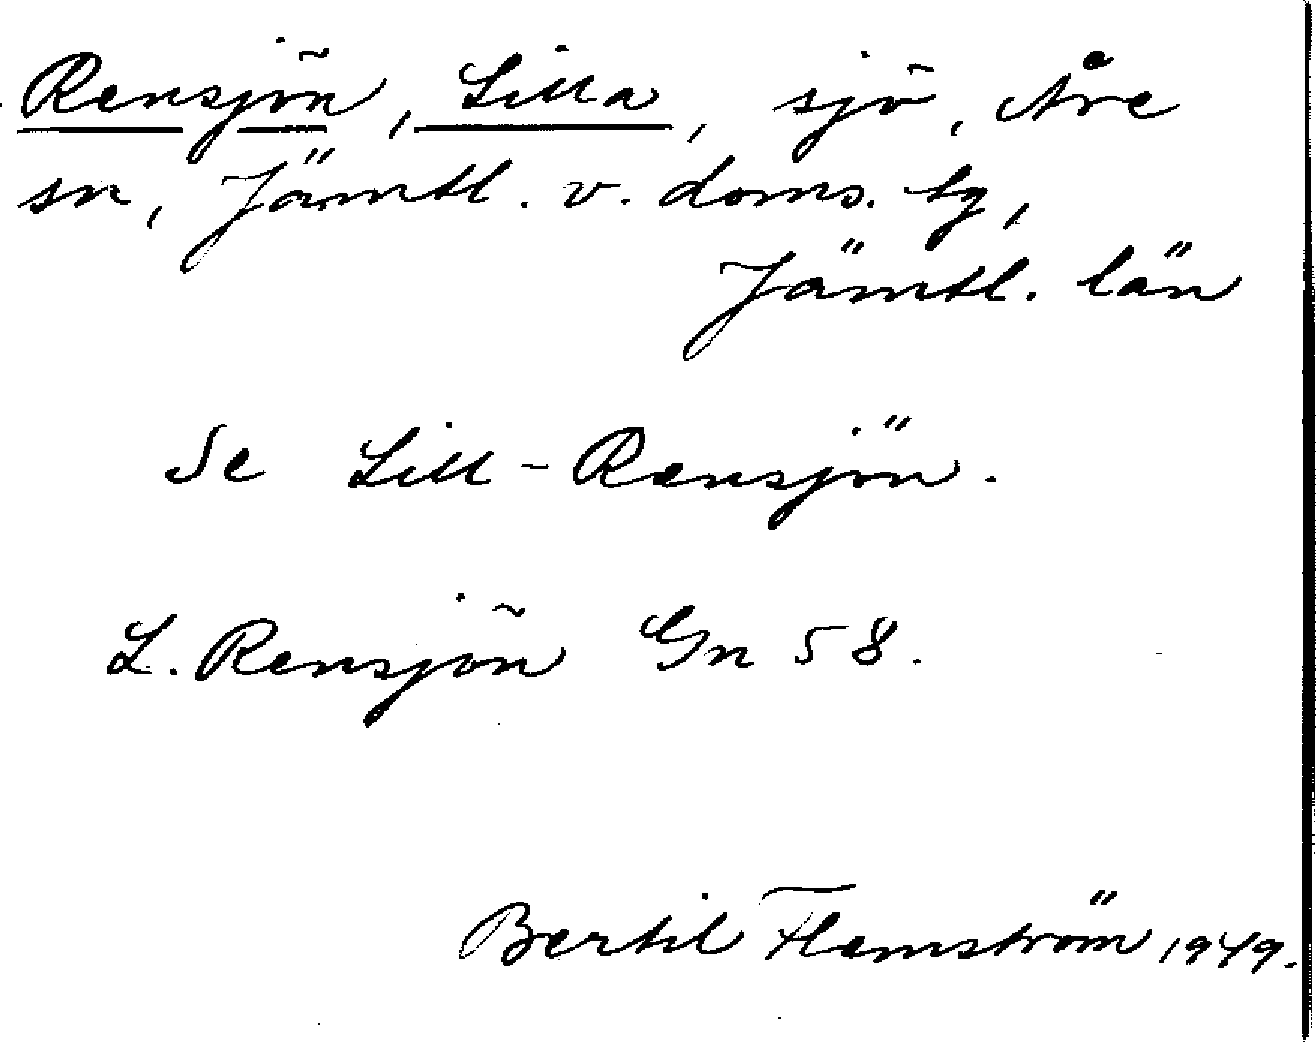 Rensjön, Lilla, sjö, Åre
sn, Jämtl. v. doms. tg,
Jämtl. län
Se Lill-Rensjön.
L. Rensjön Gn 58.
Bertil Flemström 1949.